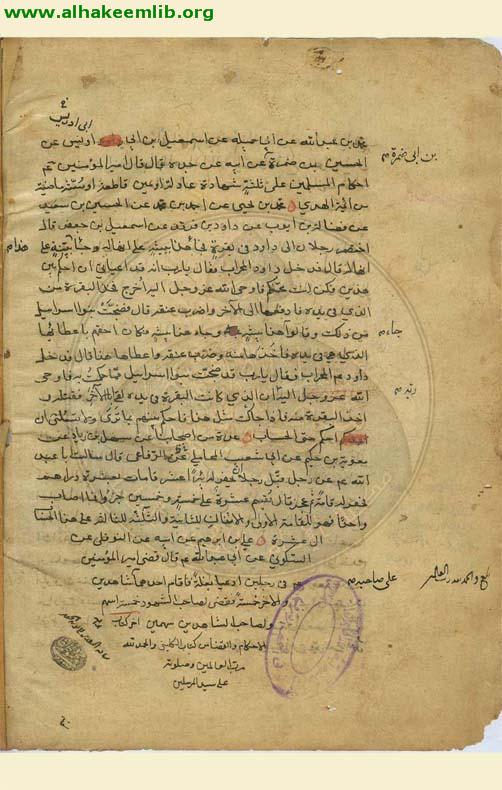 www.alhakeemlib.org
محمد بن عبد الله عن ابى جميلة عن اسمعيل بن ابى اويس عن
الحسين بن ضمرة عن ابيه عن جده قال قال امير المؤمنين ع
احكام المسلمين على ثلثة شهادة عادلة او يمين قاطعة او سنة ماضية
من ائمة الهدى محمد بن يحيى عن احمد بن محمد عن الحسين بن سعيد
عن فضالة بن ايوب عن داود بن فرقد عن اسمعيل بن جعفر قال
اختصم رجلان الى داود فى بقرة فجاء هذا ببينة على انها له وجاء هذا ببينة على
انها له قال فدخل داود المحراب فقال يا رب انه قد اعيانى ان احكم بين
هذين فكن انت تحكم فاوحى الله عز وجل اليه اخرج فخذ البقرة من
الذى فى يده فادفعها الى الآخر واضرب عنقه قال فضجت بنو اسرائيل
من ذلك وقالوا هذا ببينة وجاء هذا ببينة وكان احقهم باعطائها
الذى هى فى يده فاخذها منه وضرب عنقه واعطاها هذا قال فدخل
داود ع المحراب فقال يا رب قد ضجت بنو اسرائيل مما حكمت به فاوحى
الله عز وجل اليه ان الذى كانت البقرة فى يده لقى ابا الآخر فقتله و
اخذ البقرة منه فاذا جاءك مثل هذا فاحكم بينهم بما ترى ولا تسئلنى ان
احكم حتى الحساب عدة من اصحابنا عن سهل بن زياد عن
معوية بن حكيم عن ابى شعيب المحاملى عن الرفاعى قال سالت ابا عبد
الله ع عن رجل قبل رجلا ان يحفر له بئرا عشر قامات بعشرة دراهم
فحفر له قامة ثم عجز قال تقسم عشرة على خمسة وخمسين جزوا فما اصاب
واحدا فهو للقامة الاولى والاثنان للثانية والثلثة للثالثة على هذا الحساب
الى عشرة على بن ابرهيم عن ابيه عن النوفلى عن
السكونى عن ابى عبد الله ع قال قضى امير المؤمنين
ع فى رجلين ادعيا بغلة فاقام احدهما شاهدين
والآخر خمسة فقضى لصاحب الشهود خمسة اسهم
ولصاحب الشاهدين سهمين آخر كتاب
الاحكام والقضا من كتاب الكلينى والحمد لله
رب العالمين وصلوته
على سيد المرسلين
ابى اويس
بن ابى ضمرة
هذا
جاء
على صاحبه
والحمد لله رب العالمين